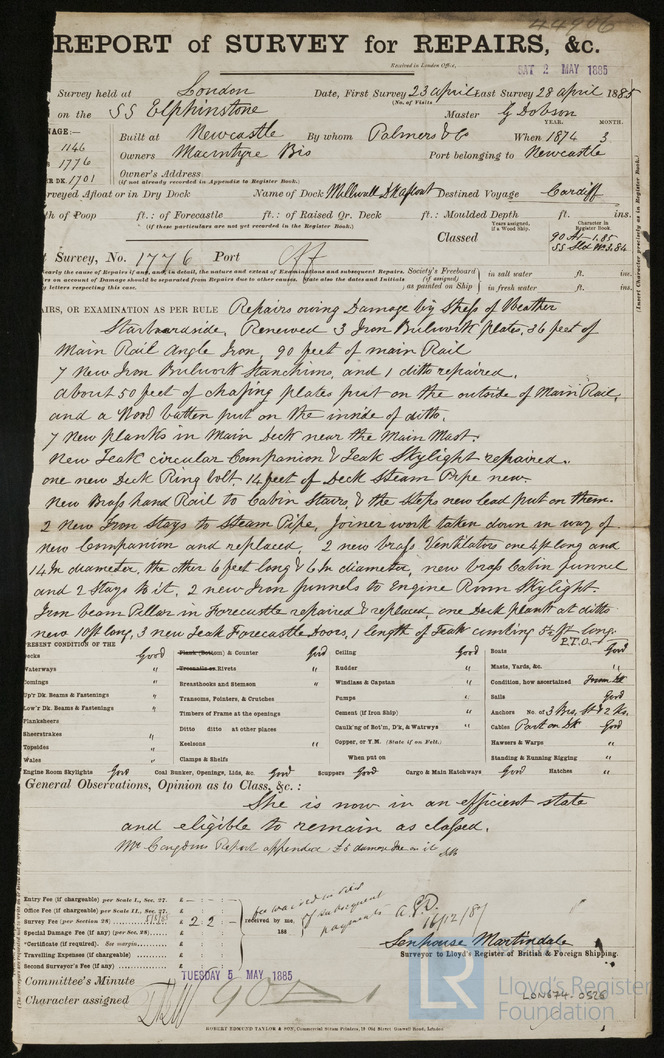 44906
REPORT of SURVEY for REPAIRS, &c.
Received in London Office,
SAT 2 MAY 1885
Survey held at London Date, First Survey 23 April Last Survey 28 April 1885
(No. of Visits
on the SS Elphinstone Master G Dobson
YEAR. MONTH.
NAGE:—
1146
1776
ER DK. 1701
Built at Newcastle By whom Palmers & Co When 1874 3
Owners Macintyre Bros Port belonging to Newcastle
Owner's Address
(If not already recorded in Appendix to Register Book.)
rveyed Afloat or in Dry Dock Name of Dock Millwall Dk afloat Destined Voyage Cardiff
th of Poop ft.: of Forecastle ft.: of Raised Qr. Deck ft.: Moulded Depth ft. ins.
(if these particulars are not yet recorded in the Register Book.)
Years assigned, if a Wood Ship.
Character in Register Book.
Classed 90 A1 1.85
t Survey, No. 1776 Port
Society's Freeboard (if assigned) as painted on Ship
in salt water ft. ins.
in fresh water ft. ins.
(Insert Character precisely as in Register Book.)
AIRS, OR EXAMINATION AS PER RULE Repairs owing Damage by Stress of Weather
Starboardside, Renewed 3 Iron Bulwork plates, 36 feet of
Main Rail Angle Iron, 90 feet of main Rail
7 New Iron Bulwork Stanchions, and 1 ditto repaired.
about 50 feet of chafing plates put on the outside of Main Rail,
and a Wood batten put on the inside of ditto.
7 New planks in Main Deck near the Main Mast.
New Teak circular Companion & Teak Skylight repaired.
one new Deck Ring bolt 14 feet of Deck Steam Pipe new.
New Brass hand Rail to Cabin Stairs, & the steps new lead put on them.
2 New Iron Stays to Steam Pipe, Joiner work taken down in way of
new Companion and replaced, 2 new brass Ventilators one 4ft long and
14 In diameter, the other 6 feet long & 6 In diameter, new brass Cabin funnel
and 2 Stays to it, 2 new Iron funnels to Engine Room Skylight.
Iron beam Pillar in Forecastle repaired & replaced one Deck plank at ditto
new 10ft long, 3 new Teak Forecastle Doors, 1 length of Teak combing 5½ ft long.
P.T.O.
PRESENT CONDITION OF THE
Decks Good Plank (Bottom) & Counter Good Ceiling Good Boats Good
Waterways " Treenails or Rivets " Rudder " Masts, Yards, &c. "
Comings " Breasthooks and Stemson Windlass & Capstan " Condition, how ascertained From Dk
Up'r Dk. Beams & Fastenings " Transoms, Pointers, & Crutches Pumps " Sails Good
Low'r Dk. Beams & Fastenings " Timbers of Frame at the openings Cement (if Iron Ship) " Anchors No. of 3 Brs, St & 2 Ks.
Planksheers Ditto ditto at other places Caulk'ng of Bot'm, D'k, & Watrwys " Cables Part on Dk Good
Sheerstrakes " Keelsons " Copper, or Y.M. (State if on Felt.) Hawsers & Warps "
Topsides " Clamps & Shelfs When put on Standing & Running Rigging "
Wales "
Engine Room Skylights Good Coal Bunker, Openings, Lids, &c. Good Scuppers Good Cargo & Main Hatchways Good Hatches "
General Observations, Opinion as to Class, &c.:
She is now in an efficient state
and eligible to remain as classed.
Entry Fee (if chargeable) per Scale I., Sec. 27. £
Office Fee (if chargeable) per Scale II., Sec. 27. £
Survey Fee (per Section 28) £ 2 : 2 : –
Special Damage Fee (if any) (per Sec. 28) £
*Certificate (if required). See margin. £
Travelling Expenses (if chargeable) £
Second Surveyor's Fee (if any) £
received by me,
188
16/12/87
Senhouse Martindale
Surveyor to Lloyd's Register of British & Foreign Shipping.
Committee's Minute TUESDAY 5 MAY 1885
Character assigned 90 A 1
LON674-0526
LR Lloyd's Register
Foundation
ROBERT EDMUND TAYLOR & SON, Commercial Steam Printers, 19 Old Street Goswell Road, London